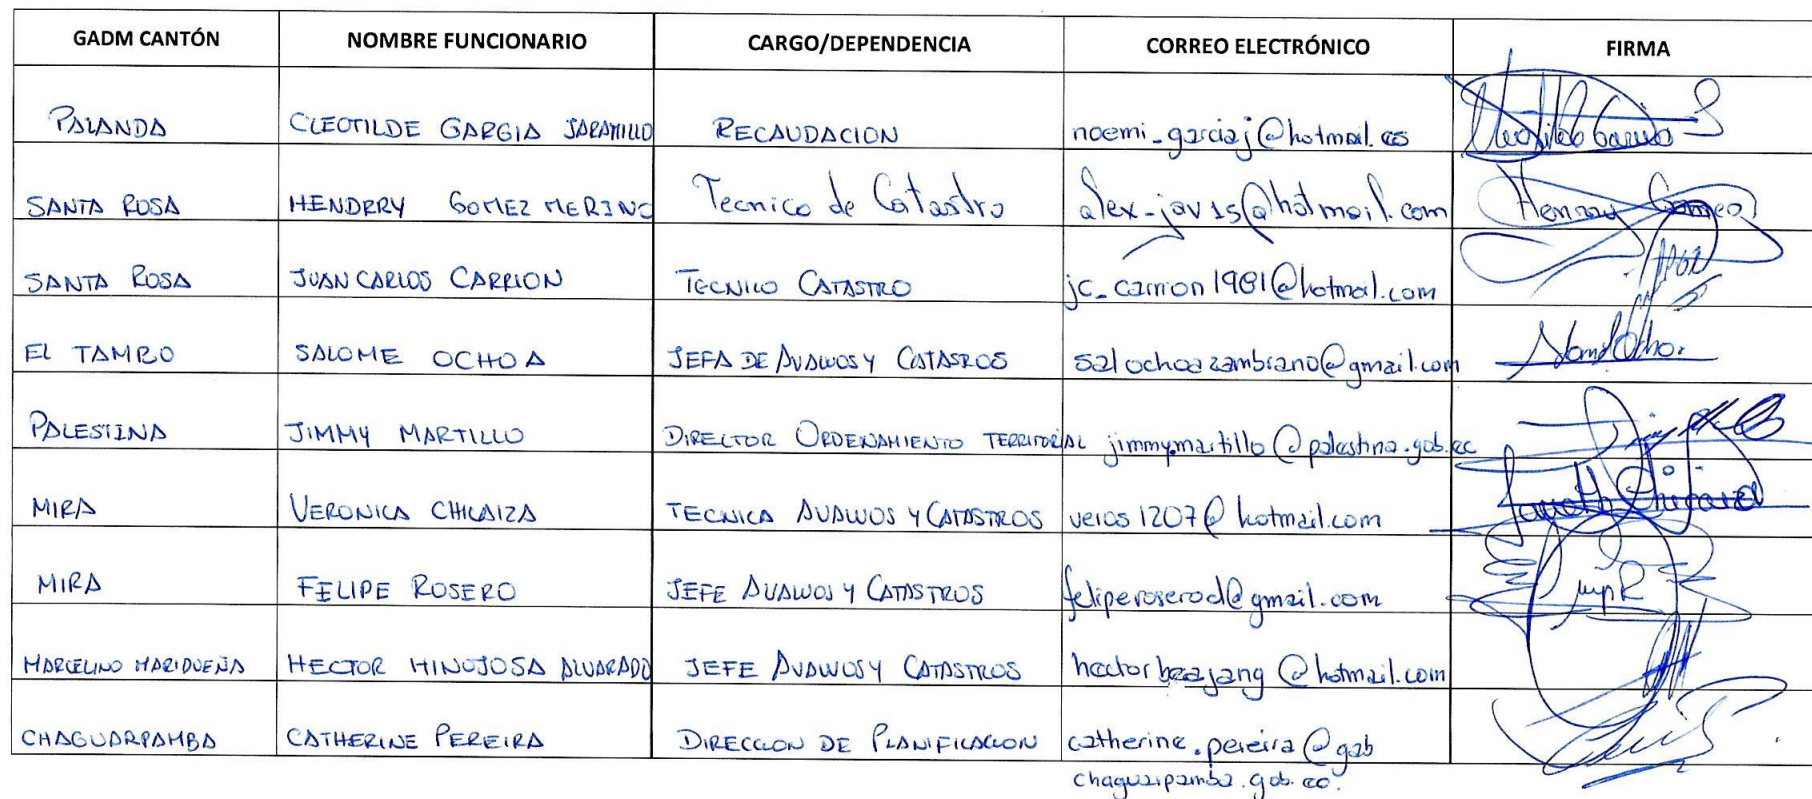 GADM CANTÓN NOMBRE FUNCIONARIO CARGO/DEPENDENCIA CORREO ELECTRÓNICO FIRMA
PALANDA CLEOTILDE GARGIA JARAMILLO RECAUDACION noemi_garciaj@hotmail.es
SANTA ROSA HENDRRY GOMEZ MERINO Tecnico de Catastro alex-jav15@hotmail.com Henrry Gomez
SANTA ROSA JUAN CARLOS CARRION TECNICO CATASTRO jc_carrion1981@hotmail.com
EL TAMBO SALOME OCHOA JEFA DE AVALUOS Y CATASROS salochoazambrano@gmail.com
PALESTINA JIMMY MARTILLO DIRECTOR ORDENAMIENTO TERRITORIAL jimmymartillo@palestina.gob.ec
MIRA VERONICA CHICAIZA TECNICA AVALUOS Y CATASTROS veros1207@hotmail.com
MIRA FELIPE ROSERO JEFE AVALUOS Y CATASTROS feliperoserod@gmail.com
MARCELINO MARIDUEÑA HECTOR HINOJOSA ALVARADO JEFE AVALUOS Y CATASTROS
CHAGUARPAMBA CATHERINE PEREIRA DIRECCION DE PLANIFICACION catherine.pereira@gab
chaguarpamba.gob.ec.